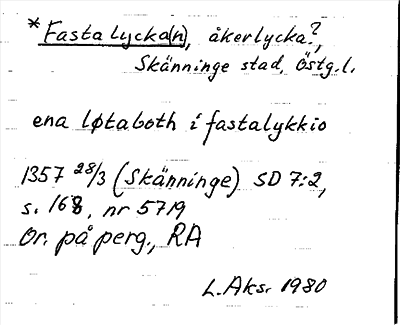 *Fasta lycka(n), åkerlycka?,
Skänninge stad, Östg.l.
ena løtaboth i fastalykkio
1357 28/3 (Skänninge) SD 7:2,
s. 168, nr 5719
Or. på perg., RA
L. Aks. 1980